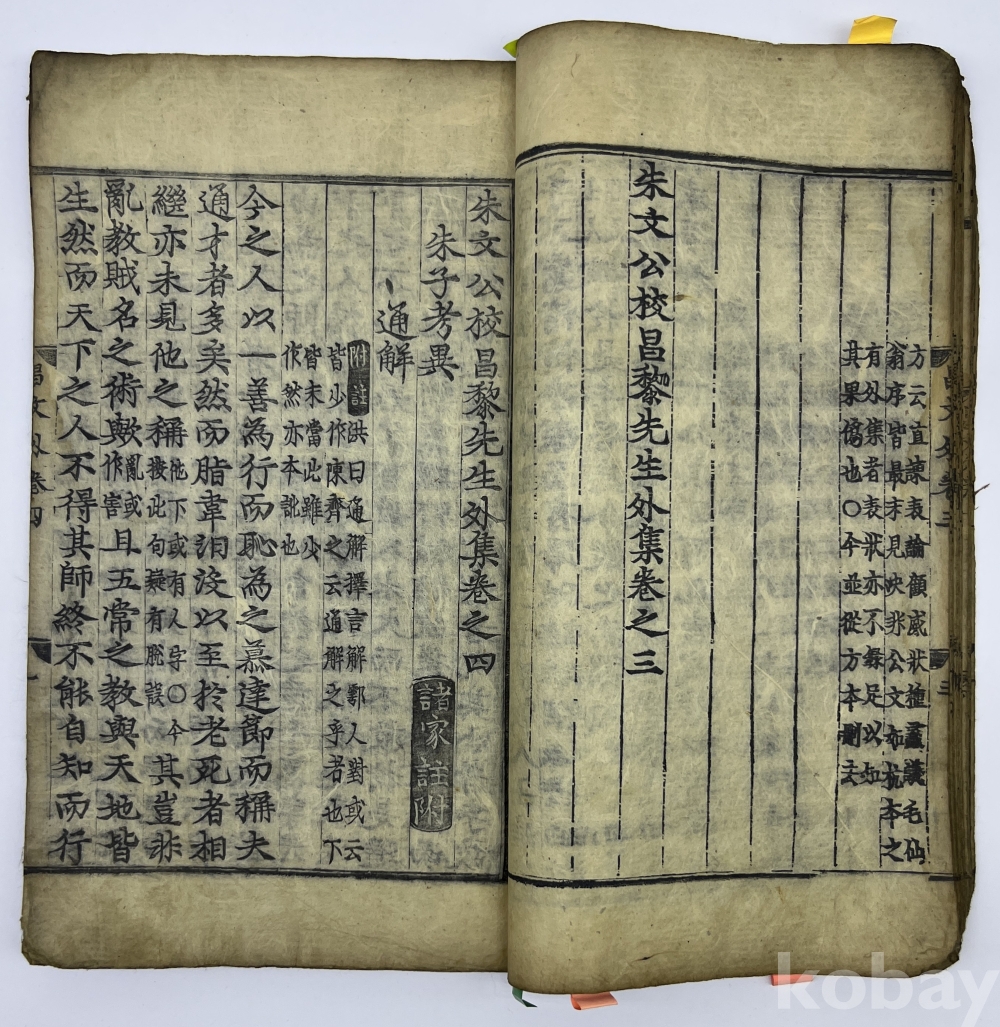 方云宜諫表論顧威狀種蠡議毛仙
翁序皆最末見決非公文而杭本之
有外集者表狀亦不錄足以知
其果僞也○今並從方本刪去
朱文公校昌黎先生外集卷之三
朱文公校昌黎先生外集卷之四
朱子考異 諸家註附
通解
附註 洪曰通解擇言解鄠人對或云
皆少作陳齊之云通解之乎者也下
皆未當此雖少
作然亦本訛也
今之人以一善為行而恥為之慕達節而稱夫
通才者多矣然而脂韋汨沒以至於老死者相
繼亦未見他之稱他下或有人字○今按此句疑有脫誤其豈非
亂教賊名之術歟亂或作害且五常之教與天地皆
生然而天下之人不得其師終不能自知而行
kobay